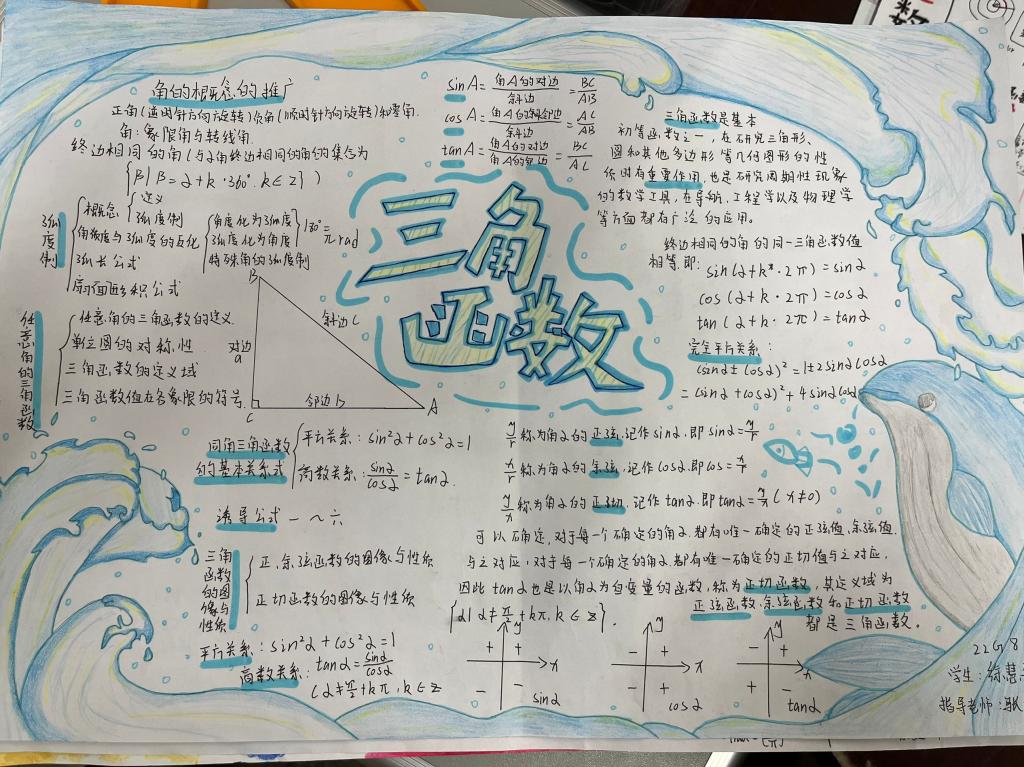 角的概念的推广
正角(逆时针方向旋转)负角(顺时针方向旋转)和零角.
角:象限角与转线角
终边相同的角(与α角终边相同的角的集合为
{β|β=α+k·360°.k∈z})
弧度制
概念
定义
弧度制
角度与弧度的互化
角度化为弧度
弧度化为角度
特殊角的弧度制
180°=πrad
弧长公式
扇面积公式
任意角的三角函数
任意角的三角函数的定义
单位圆的对称性
三角函数的定义域
三角函数值在各象限的符号
B
斜边c
对边
a
C
邻边b
A
同角三角函数
的基本关系式
平方关系:sin²α+cos²α=1
商数关系:sinα/cosα=tanα.
诱导公式一~六
三角函数的图像与性质
正.余弦函数的图像与性质
正切函数的图像与性质
平方关系:sin²α+cos²α=1
商数关系:tanα=sinα/cosα
(α≠π/2+kπ,k∈z
sinA=角A的对边/斜边=BC/AB
cosA=角A的斜邻边/斜边=AC/AB
tanA=角A的对边/角A的邻边=BC/AC
三角函数
三角函数是基本
初等函数之一,在研究三角形、
圆和其他多边形等几何图形的性
质时有重要作用,也是研究周期性现象
的数学工具,在导航,工程学以及物理学
等方面都有广泛的应用。
终边相同的角的同一三角函数值
相等.即:sin(α+k·2π)=sinα
cos(α+k·2π)=cosα
tan(α+k·2π)=tanα
完全平方关系:
(sinα±cosα)²=1±2sinαcosα
=(sinα+cosα)²+4sinαcosα
y/r称为角α的正弦,记作sinα.即sinα=y/r
x/r称为角α的余弦,记作cosα.即cos=x/r
y/x称为角α的正切,记作tanα.即tanα=y/x(x≠0)
可以确定,对于每一个确定的角α.都有唯一确定的正弦值.余弦值
与之对应,对于每一个确定的角α.都有唯一确定的正切值与之对应,
因此tanα也是以角α为自变量的函数,称为正切函数,其定义域为
{α|α≠π/2+kπ,k∈z}.
正弦函数.余弦函数和正切函数
都是三角函数。
y
+ +
x
- -
sinα
y
- +
x
- +
cosα
y
- +
x
+ -
tanα
22G8
学生:徐慧
指导老师:耿